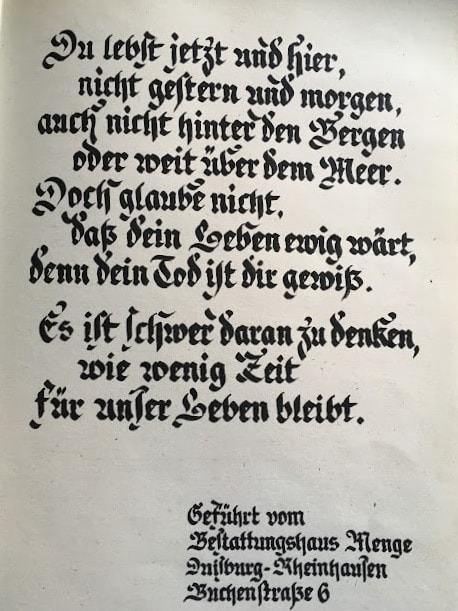 Du lebst jetzt und hier,
nicht gestern und morgen,
auch nicht hinter den Bergen
oder weit über dem Meer.
Doch glaube nicht,
daß dein Leben ewig wärt,
denn dein Tod ist dir gewiß.
Es ist schwer daran zu denken,
wie wenig Zeit
für unser Leben bleibt.
Geführt vom
Bestattungshaus Menge
Duisburg-Rheinhausen
Buchenstraße 6